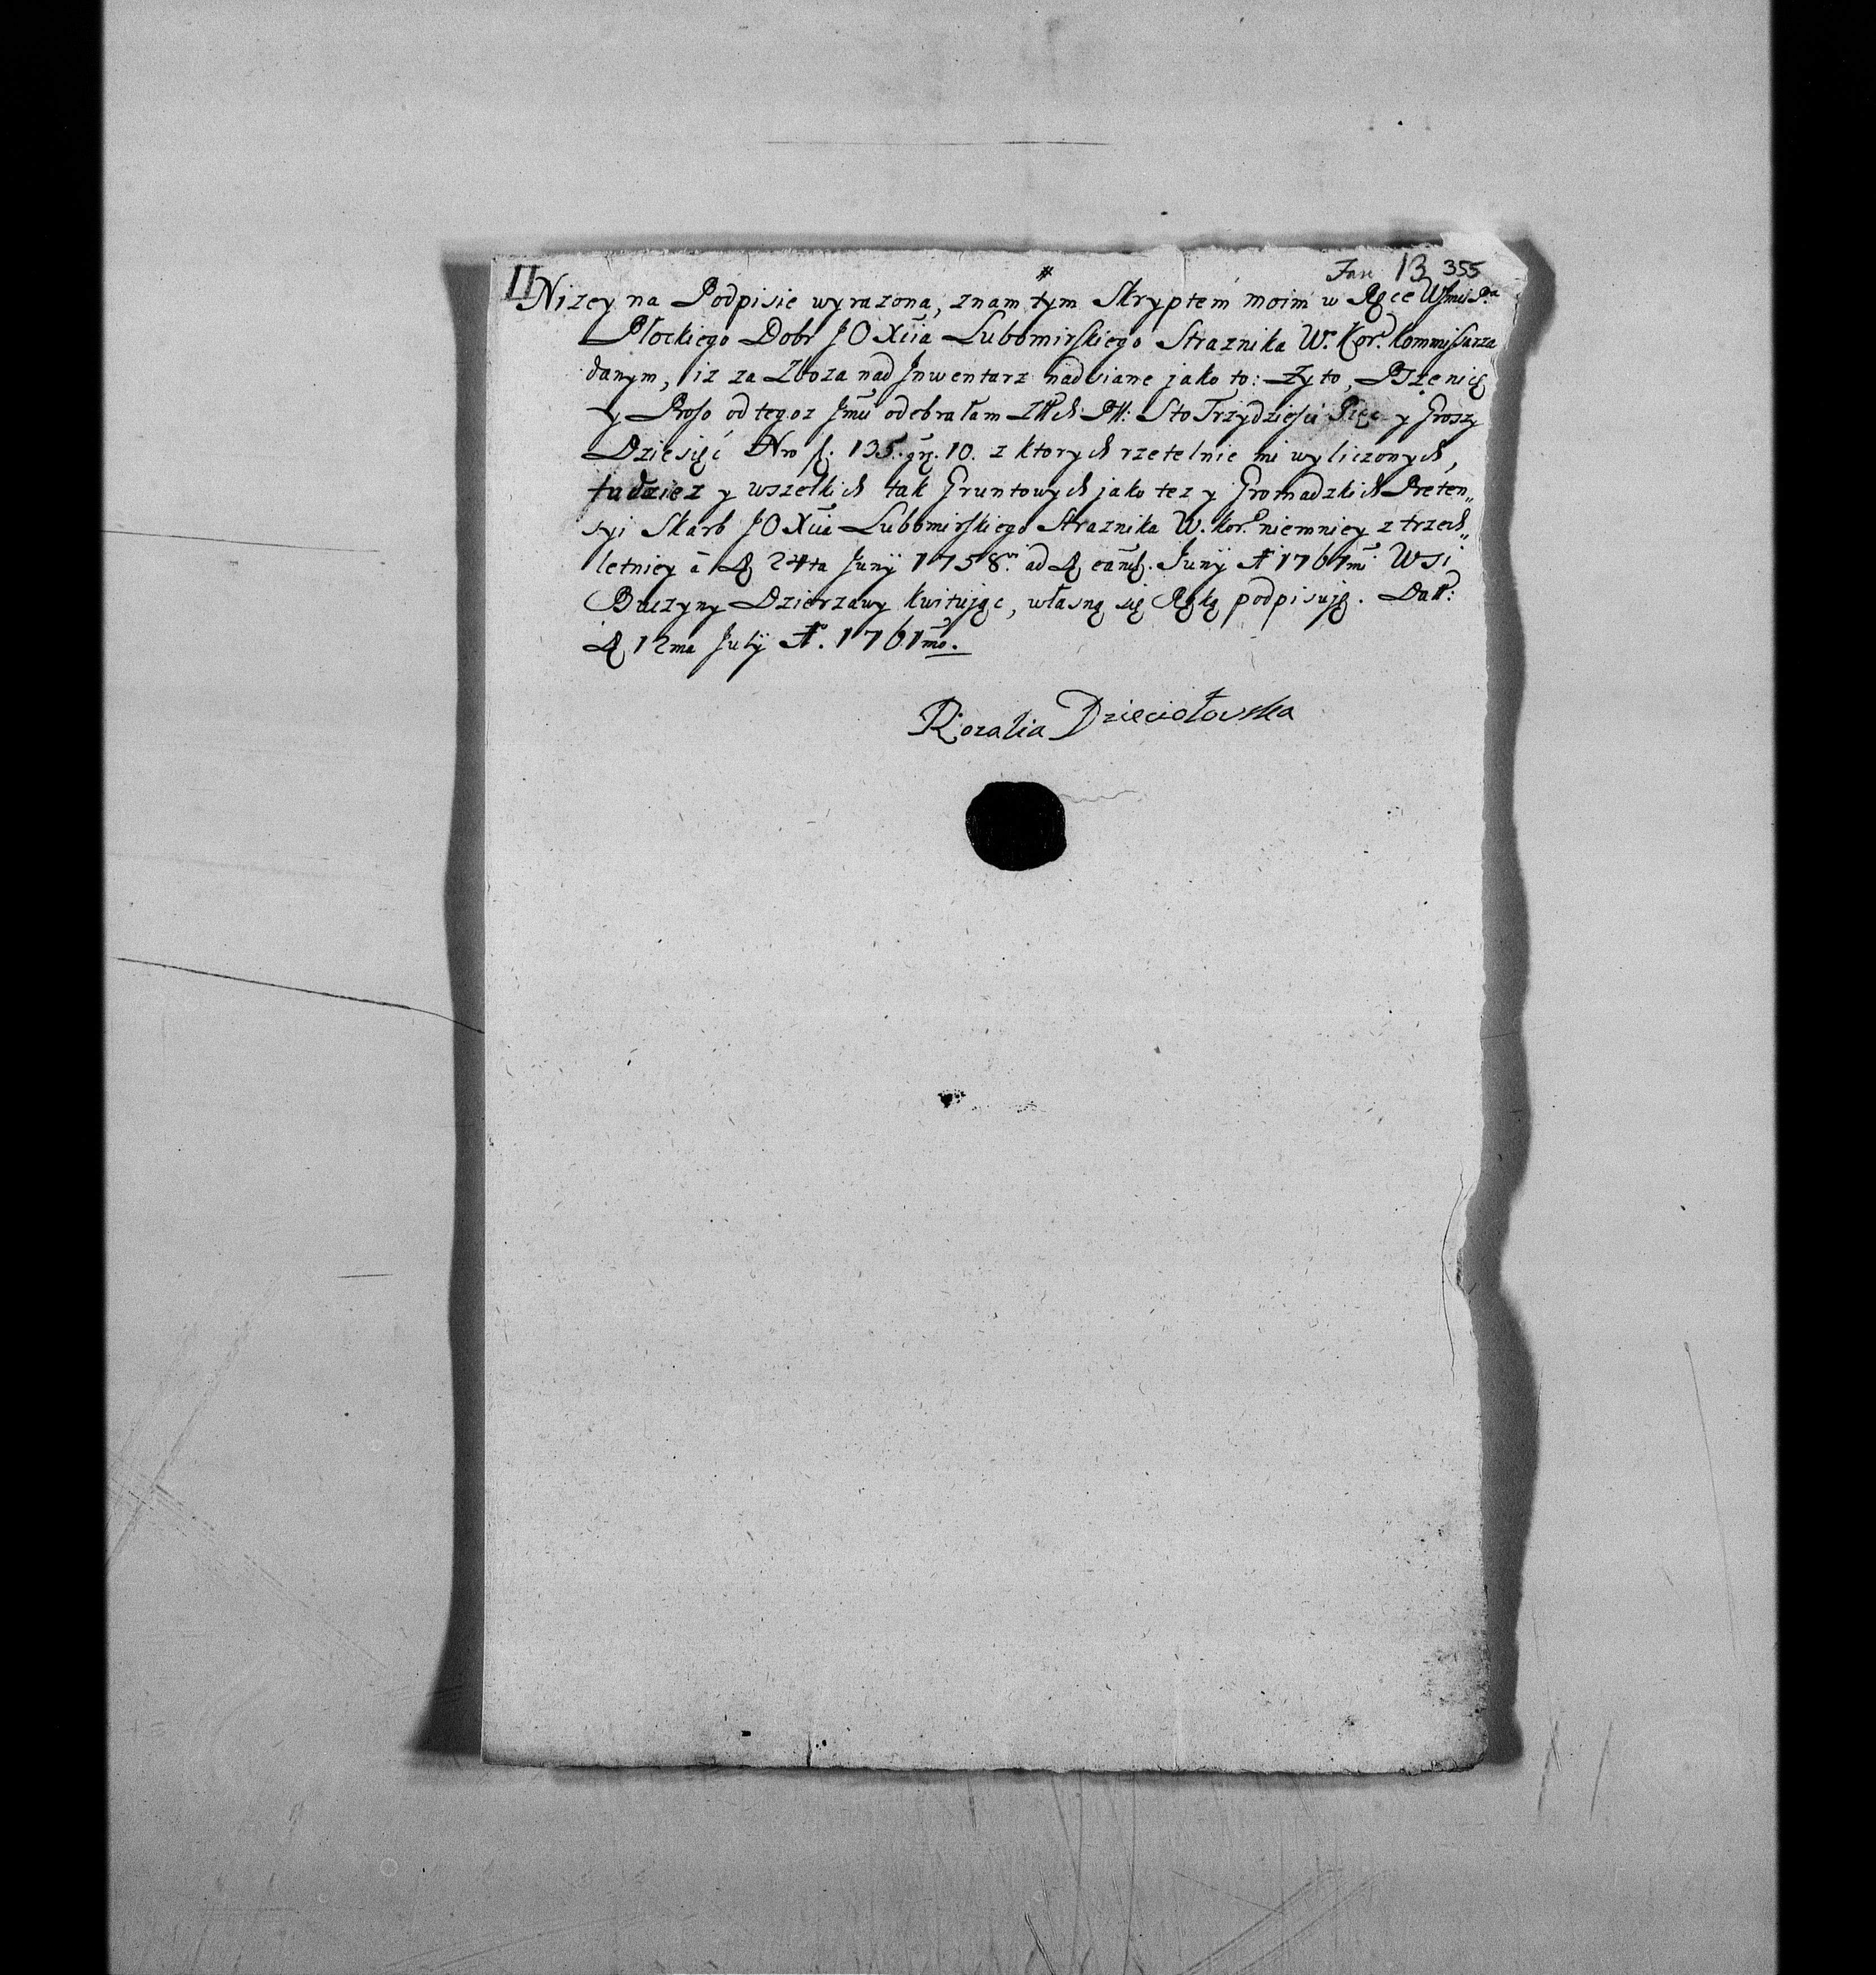 Jan 13 355
II
Nizey na Podpisie wyrazona, znam tym Skryptem moim w Ręce WJmci Pa
Płockiego Dobr JOXcia Lubomirskiego Straznika W. Kor. Kommissarza
danym, iz za Zboza nad Jnwentarz nadsiane jako to: Zyto, Pszenicę
y Proso od tegoz Jmci odebrałam Złłch Pll: Sto Trzydziesci Pięc y Groszy
Dziesięć Nro fl. 135. gr. 10. z ktorych rzetelnie mi wyliczonych,
tudziez y wszelkich tak Gruntowych jako tez y Gromadzkich Preten„
syi Skarb JOXcia Lubomirskiego Straznika W. Kor. niemniey z trzech„
letniey a D 24ta Juny 1758. ad D eand. Juny A 1761mi Wsi
Buczyny Dzierzawy kwitując, własną się Ręką podpisuję. Datt:
D 12ma July Ao. 1761mo.
Rozalia Dzieciołowska